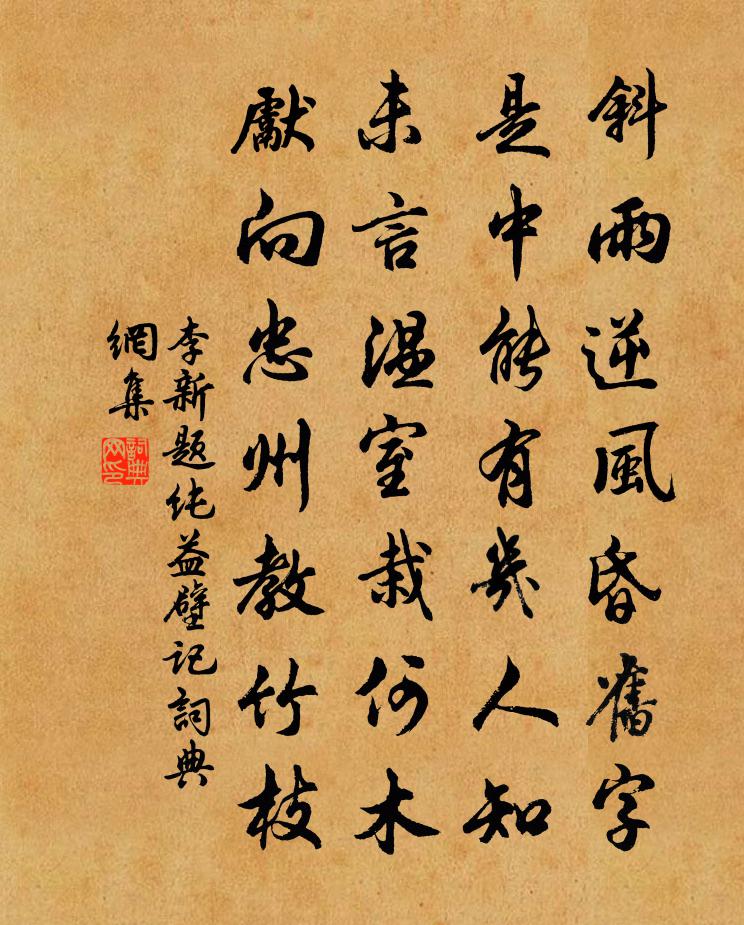 斜雨逆風昏舊字
是中能有幾人知
未言溫室栽何木
獻向忠州教竹枝
李新題純益壁記詞典
網集
詞典网印